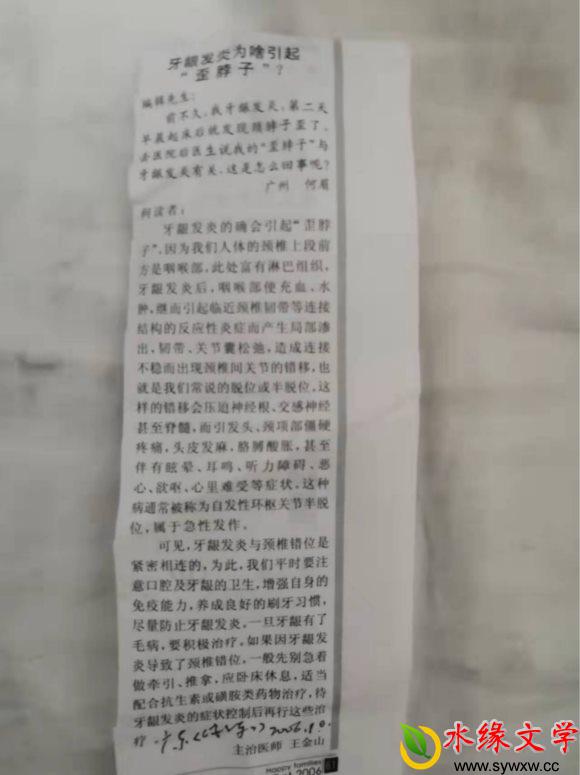 牙龈发炎为啥引起
“歪脖子”?
编辑先生:
前不久,我牙龈发炎,第二天
早晨起床后就发现颈脖子歪了。
去医院后医生说我的“歪脖子”与
牙龈发炎有关,这是怎么回事呢?
广州 何眉
何读者:
牙龈发炎的确会引起“歪脖
子”,因为我们人体的颈椎上段前
方是咽喉部,此处富有淋巴组织,
牙龈发炎后,咽喉部便充血、水
肿,继而引起临近颈椎韧带等连接
结构的反应性炎症而产生局部渗
出,韧带、关节囊松弛,造成连接
不稳而出现颈椎间关节的错移,也
就是我们常说的脱位或半脱位,这
样的错移会压迫神经根、交感神经
甚至脊髓,而引发头、颈项部僵硬
疼痛,头皮发麻,胳膊酸胀,甚至
伴有眩晕、耳鸣、听力障碍、恶
心、欲呕、心里难受等症状,这种
病通常被称为自发性环枢关节半脱
位,属于急性发作。
可见,牙龈发炎与颈椎错位是
紧密相连的,为此,我们平时要注
意口腔及牙龈的卫生,增强自身的
免疫能力,养成良好的刷牙习惯,
尽量防止牙龈发炎,一旦牙龈有了
毛病,要积极治疗。如果因牙龈发
炎导致了颈椎错位,一般先别急着
做牵引、推拿,应卧床休息,适当
配合抗生素或磺胺类药物治疗,待
牙龈发炎的症状控制后再行这些治
疗。广东 2006.
主治医师 王金山
Happy families
2006 61
水缘文学
www.sywxw.cc